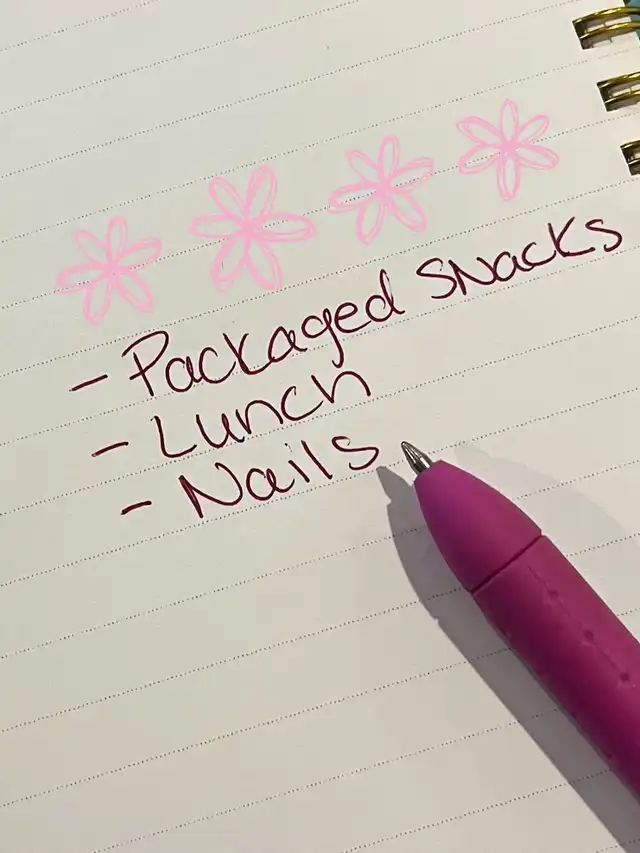 - Packaged Snacks
- Lunch
- Nails